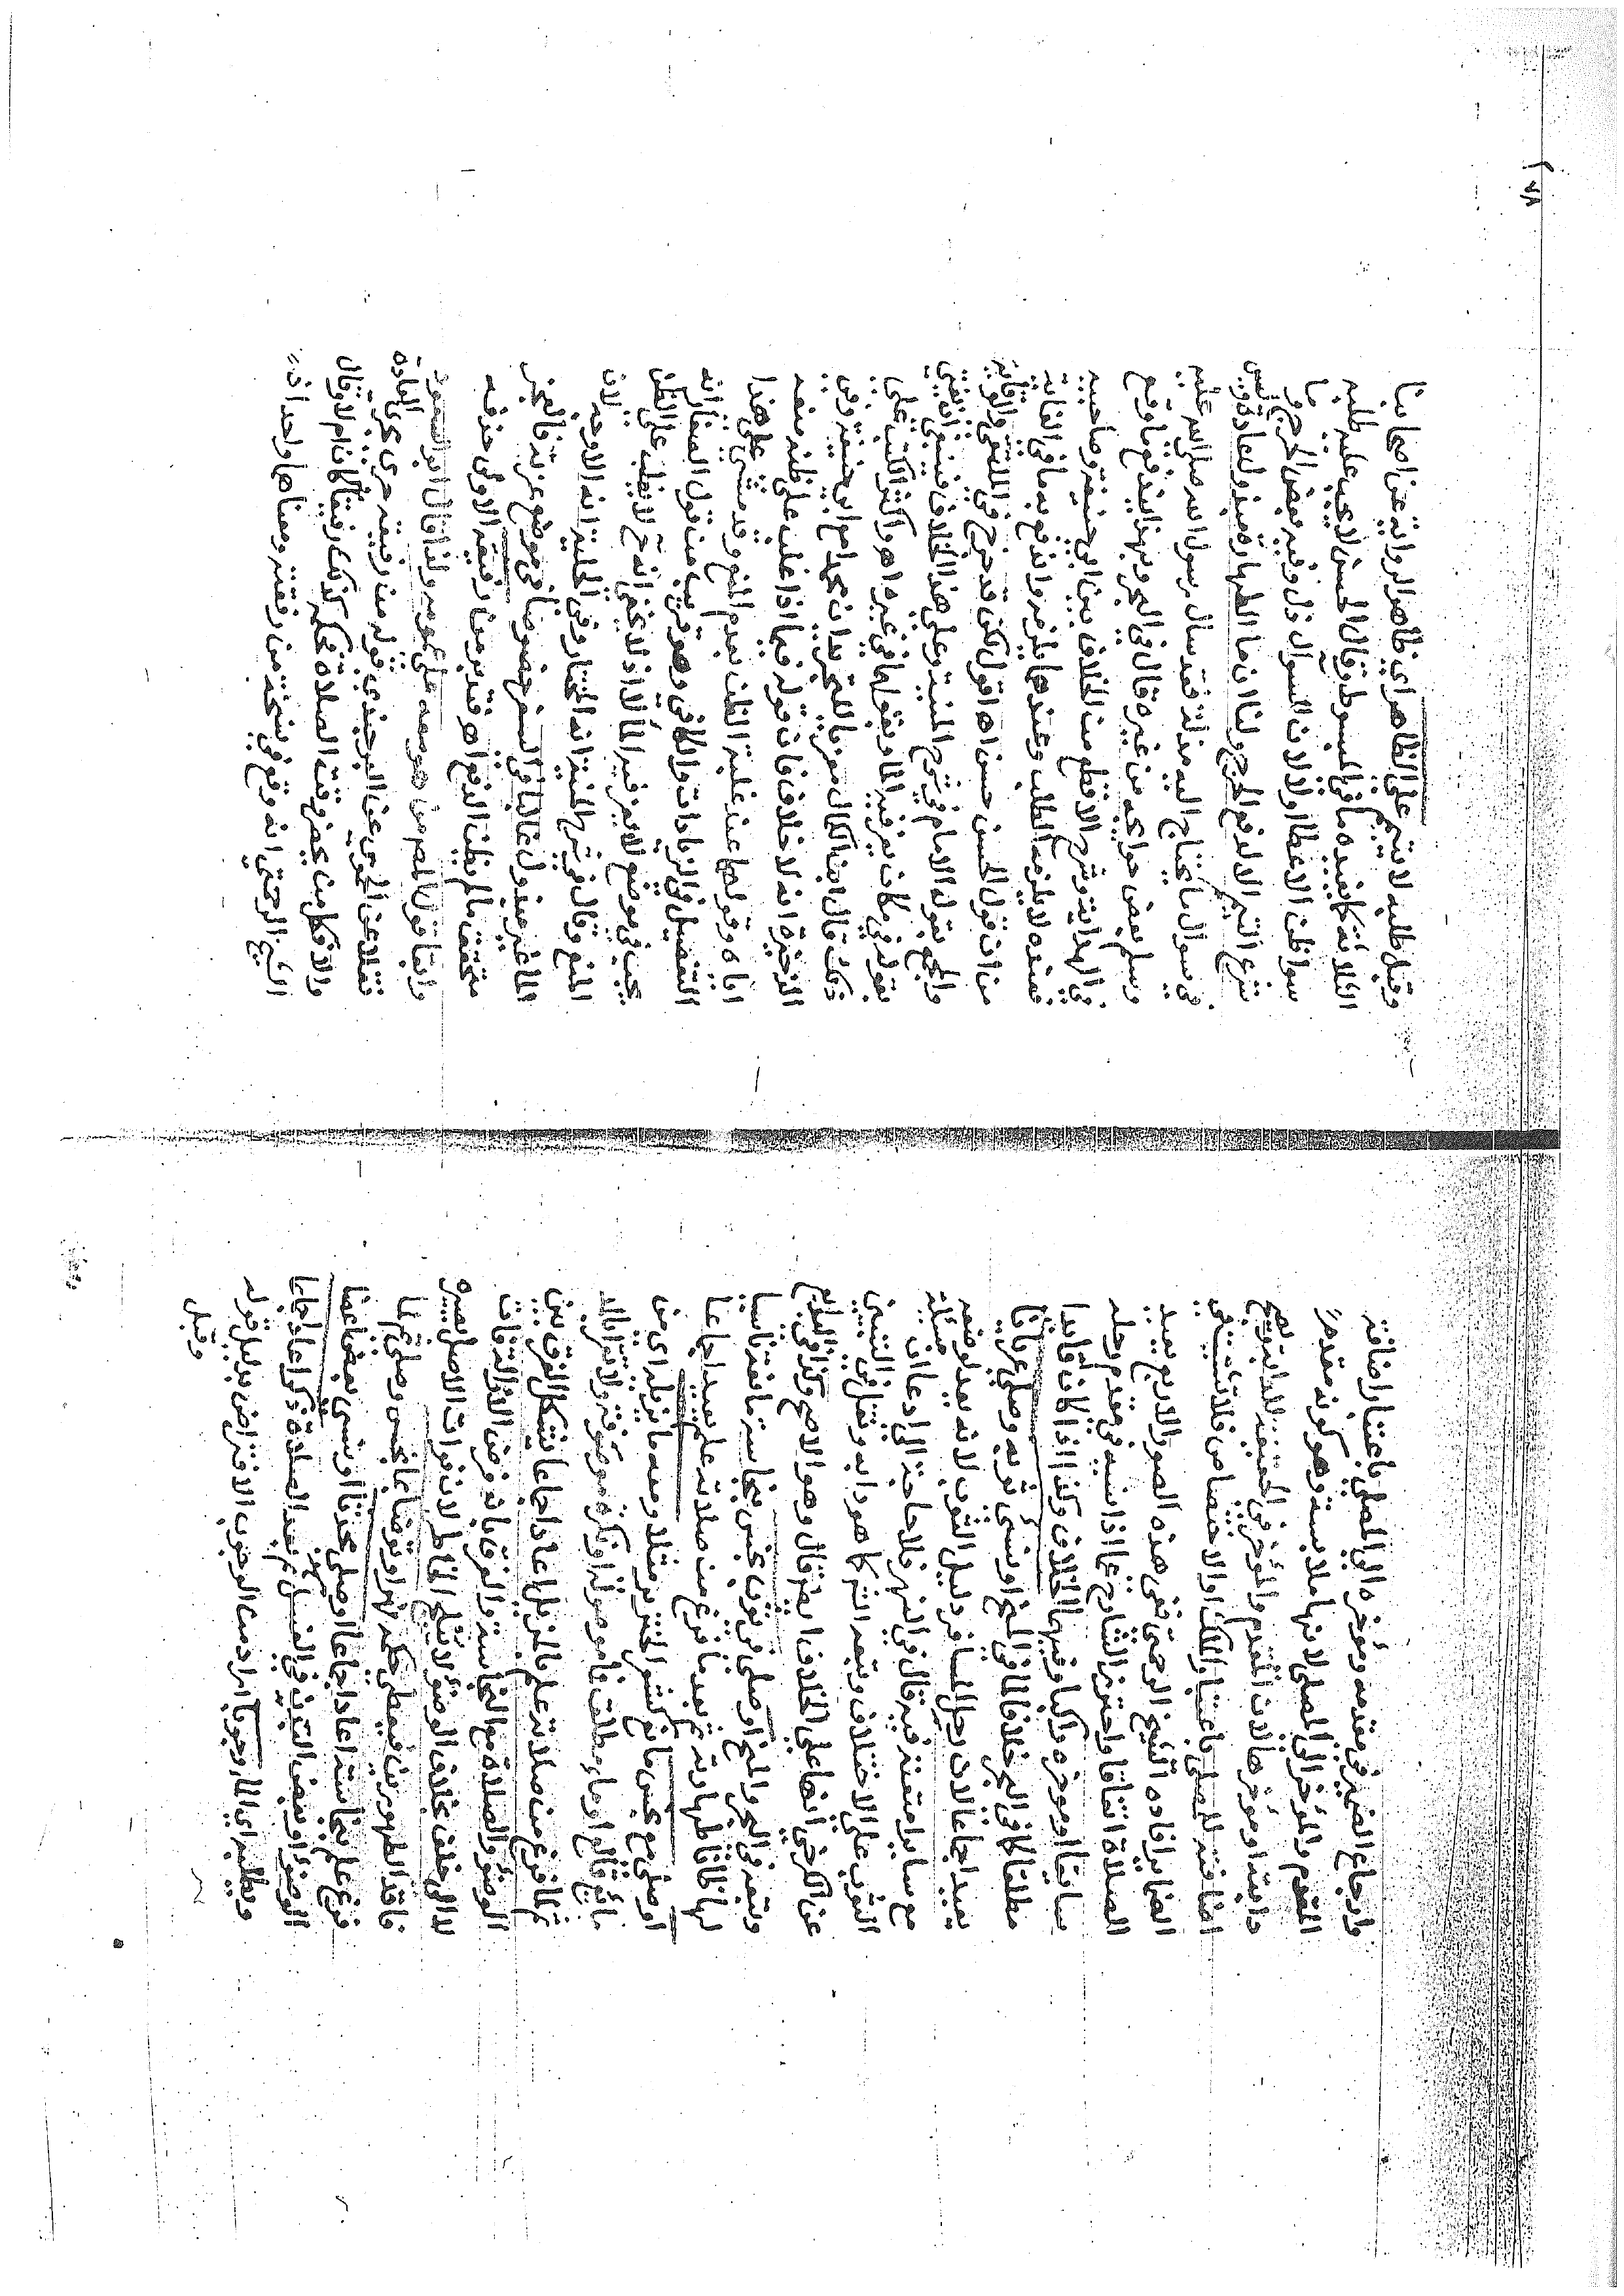 وارجاع الضمير في مقدمه ومؤخره الى المصلي باعتبار اضافة
المقدم والمؤخر الى المصلى لانها ملابسة وهو كونه مقدم
دابته او مؤخرها لان المقدم والمؤخر في الحقيقة للدابة و تصح
اضافته للمصلى باعتبار الملك او الاختصاص فلا تشتيت في
الضماير افاده الشيخ الرحمتي ففي هذه الصور الاربع يعيد
الصلاة اتفاقا واحترز الشارح عما اذا نسيه في مقدم رحله
سايقا او مؤخره راكبا وفيهما الخلاف وكذا اذا كان قايدا
مطلقا كما في البحر خلافا لما في المنح او نسى ثوبه وصلى عريانا
يعيد اجماعا لان رحل المسافر دليل الثوب لانه معد لوضعه
مع ساير امتعته فيه قال في النهر فلا حاجة الى ادعا ان مسئلة
الثوب على الاختلاف وتبعد الشم كما هو دابه ونقل في التبيين
عن الكرخي انها على الخلاف ايضا قال وهو الاصح وكذا في البدايع
وتبعه في البحر والمنح او صلى في ثوب نجس بنجاسة مانعة ناسيا
لها ظانا طهارته ثم بعد ما فرغ من صلاته علم يعيد اجماعا
او صلى مع نجس مانع كشعر الخنزير مثلا ومعه ما يزيله اى من
مايع قالع او ماء مطلق فما موصولة او نكرة موصوفة ولا تقرأ بالمد
ثم لما فرغ من صلاته علم بالمزيل اعاد اجماعا يشكل الفرق بين
الوضوء والصلاة مع النجاسة والفرق بانه فرض الازالة فات
لا الى خلف بخلاف الوضوء لا يثلج الخاطر لان فوات الاصل لغيره
فاقد الطهورين فيعطى حكمه نهر او توضأ بماء نجس وصلى ثم لما
فرغ علم بنجاسته اعاد اجماعا او صلى محدثا اونسى بعض اعضا
الوضوء او بعض البدن في الغسل ثم بعد الصلاة ذكر اعاد اجماعا
ويطلبه اي الماء وجوبا اراد من الوجوب الافتراض بدليل قوله
وقيل
وقيل طلبه لا يتيمم على الظاهر اي ظاهر الرواية عن اصحابنا
الثلاثة كما يفيده ما في المبسوط وقال الحسن لا يجب عليه طلبه ما
سوا ظن الاعطا اولا لان السؤال ذل وفيه بعض الحرج و
شرع التيمم الا لدفع الحرج ولنا ان ماء الطهارة مبذول عادة وليس
في سؤال ما يحتاج اليه مذلة فقد سأل رسول الله صلى الله عليه
وسلم بعض حوايجه من غيره قال في البحر وبهذا يندفع ما وقع
في الهداية وشرح الاقطع من الخلاف بين ابي حنيفة وصاحبيه
فعنده لا يلزمه الطلب وعندهما يلزمه واندفع به ما في الغاية
من ان قول الحسن حسن اه اقول لكن قد صرح في الملتقى والوقاية
والمجمع بقوله الامام في شرح المنية وعلى هذا الخلاف فينبغي ان يفتي
بقوله في مكان يعز فيه الماء وبقولهما في غيره اه واكثر الكتب على
ذلك قال ابن الكمال معزيا للتجريد ان محمدا مع ابي حنيفة وفي
الذخيرة انه لا خلاف فان قوله فيما اذا غلب على ظنه منعه
اياه وقولهما عند غلبة الظن بعدم المنع وقد مشى على هذا
التفصيل في الزيادات والكافي وهو قريب من قول الصفار انه
يجب في موضع لا يعز فيه الماء لا اذ لا يخفى انه ح لا يغلب على الظن
المنع وقال في شرح المنية انه المختار وفي الحلية انه الاوجه لان
الماء غير مبذول غالبا في السفر خصوصا في موضع عزته فالعجز
متحقق ما لم يظن الدفع اه وقدمر من رفيقه الاولى حذفه
وابقا قول المص من هو معه على عمومه ولذا قال ابو السعود
نقلا عن الحموي عن البرجندي قوله من رفيقه جرى مجرى العادة
والا فكل من يحضر وقت الصلاة فحكمه كذلك رفيقا كان ام لا وقال
الشيخ الرحمتي انه وقع في نسخة من رفقته ومعناها واحد اذ